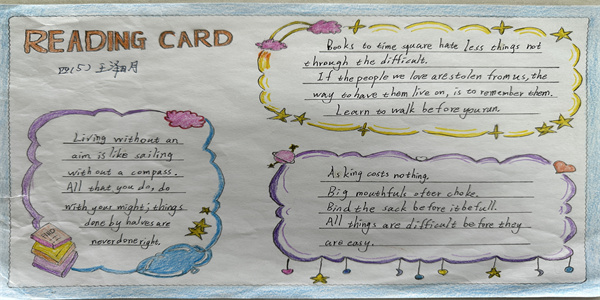 READING CARD
四(5) 王泽玥
Living without an
aim is like sailing
without a compass.
All that you do, do
with your might; things
done by halves are
never done right.
Books to time square hate less things not
through the difficult.
If the people we love are stolen from us, the
way to have them live on, is to remember them.
Learn to walk before you run.
Asking costs nothing.
Big mouthfuls ofter choke.
Bind the sack before it be full.
All things are difficult before they
are easy.